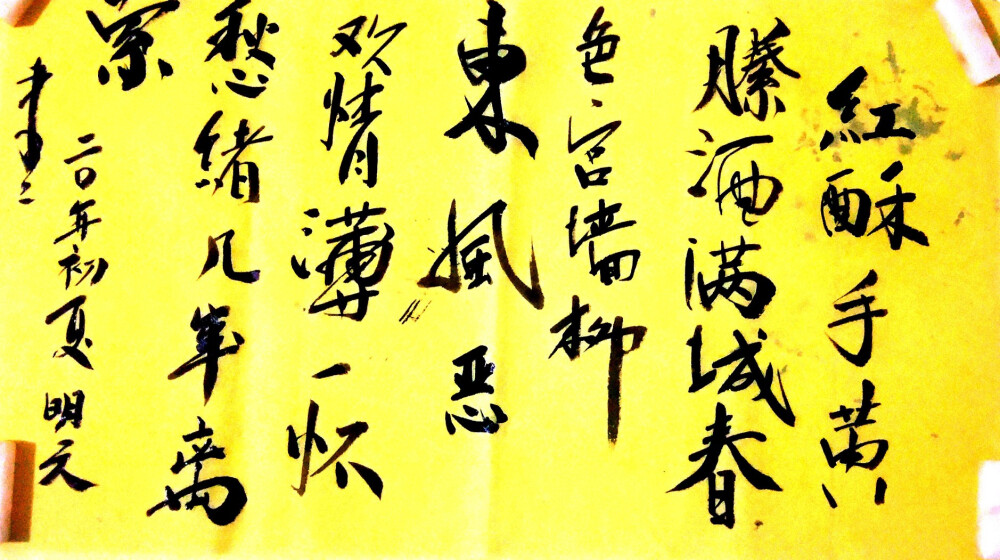 红酥手黄
縢酒满城春
色宫墙柳
東風恶
欢情薄一怀
愁緒几年离
索
二〇年初夏明元